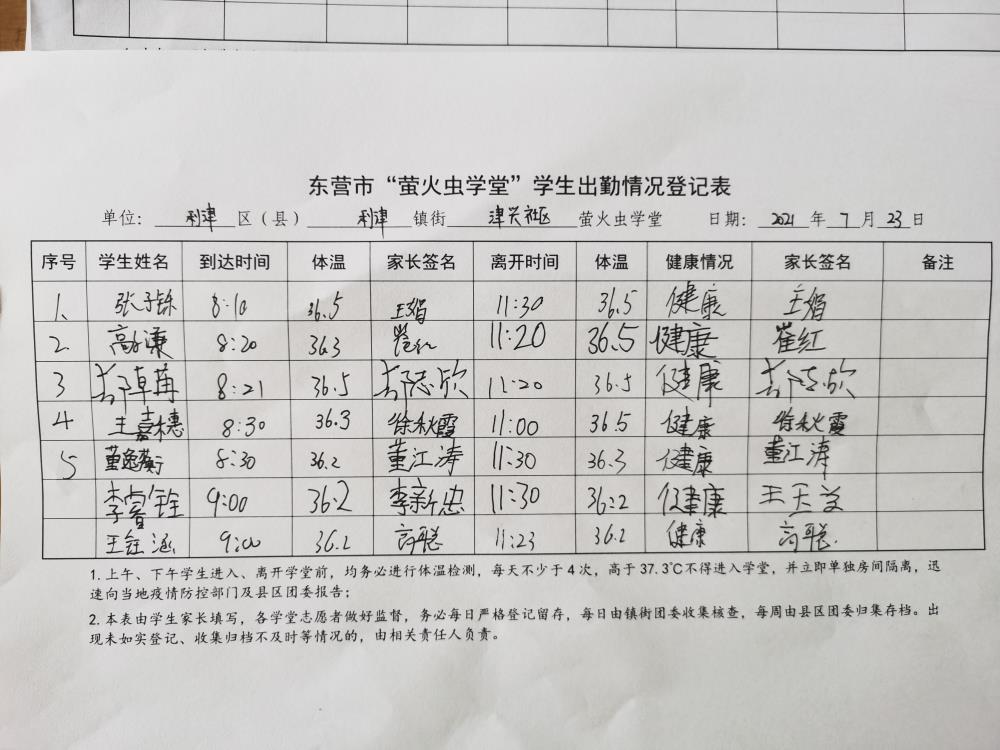 东营市“萤火虫学堂”学生出勤情况登记表
单位: 利津 区(县) 利津 镇街 津兴社区 萤火虫学堂 日期: 2021 年 7 月 23 日
序号 学生姓名 到达时间 体温 家长签名 离开时间 体温 健康情况 家长签名 备注
1、 张子铄 8:10 36.5 王娟 11:30 36.5 健康 王娟
2. 8:20 36.3 崔红 11:20 36.5 健康 崔红
3 8:21 36.5 11:20 36.5 健康
4 王嘉穗 8:30 36.3 徐秋霞 11:00 36.5 健康 徐秋霞
5 8:30 36.2 董江涛 11:30 36.3 健康 董江涛
李睿铨 9:00 36.2 李新忠 11:30 36:2 健康
王钰涵 9:00 36.2 高聪 11:23 36.2 健康 高聪
1. 上午、下午学生进入、离开学堂前，均务必进行体温检测，每天不少于4次，高于37.3℃不得进入学堂，并立即单独房间隔离，迅
速向当地疫情防控部门及县区团委报告；
2. 本表由学生家长填写，各学堂志愿者做好监督，务必每日严格登记留存，每日由镇街团委收集核查，每周由县区团委归集存档。出
现未如实登记、收集归档不及时等情况的，由相关责任人负责。